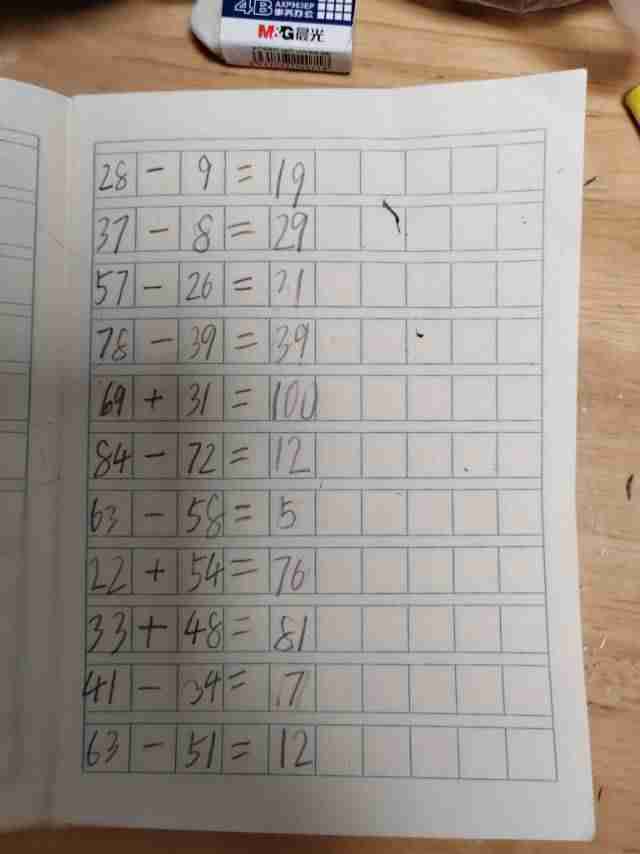 4B AXP963EP
M&G晨光
28 - 9 = 19
37 - 8 = 29
57 - 26 = 31
78 - 39 = 39
69 + 31 = 100
84 - 72 = 12
63 - 58 = 5
22 + 54 = 76
33 + 48 = 81
41 - 34 = 7
63 - 51 = 12